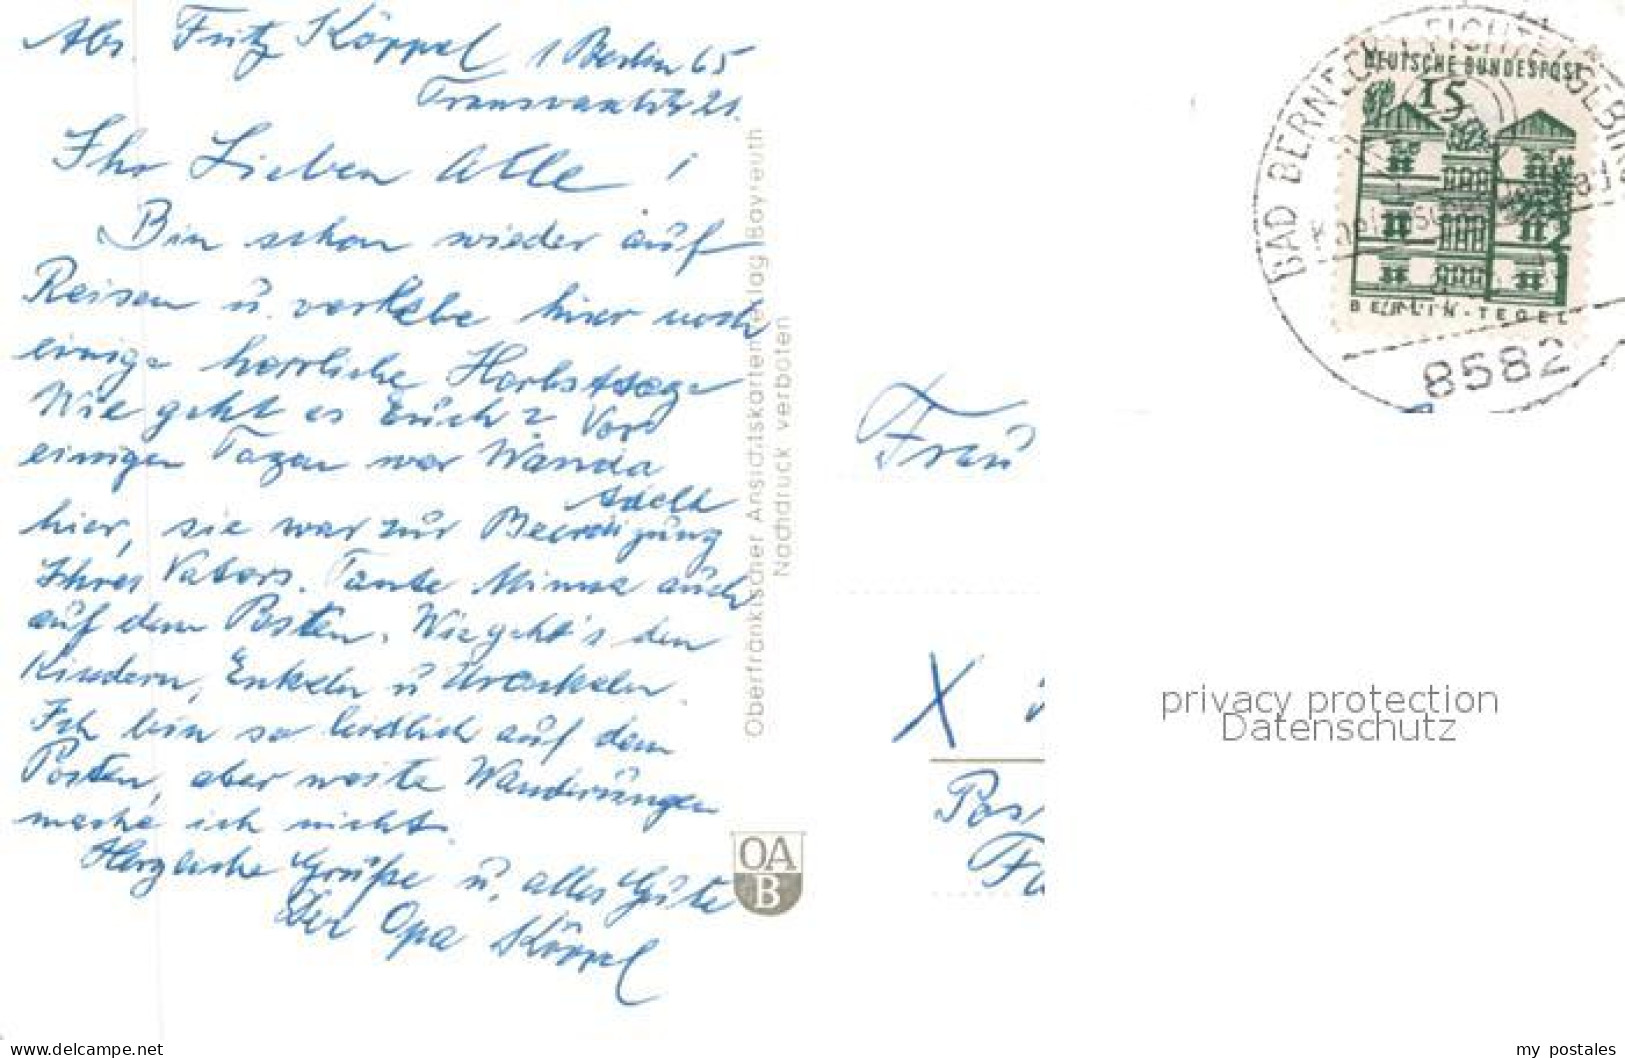 Abs. Fritz Köppel 1 Berlin 65
Transvaalstr. 21.
Ihr Lieben Alle!
Bin schon wieder auf
Reisen u. verlebe hier noch
einige herrliche Herbsttage
Wie geht es Euch? Vor
einigen Tagen war Wanda
hier, sie war zur Beerdigung
Ihres Vaters. Tante Minna auch
auf dem Posten. Wie geht's den
Kindern, Enkeln u Urenkeln.
Ich bin so leidlich auf dem
Posten, aber weite Wanderungen
mache ich nicht.
Herzliche Grüße u. alles Gute
Der Opa Köppel
Oberfränkischer Ansichtskartenverlag Bayreuth
Nachdruck verboten
OA
B
DEUTSCHE BUNDESPOST
15
BERLIN-TEGEL
BAD BERNECK FICHTELGEBIRGE
8582
Frau
X
privacy protection
Datenschutz
www.ansichtskarten-center.de
my postales